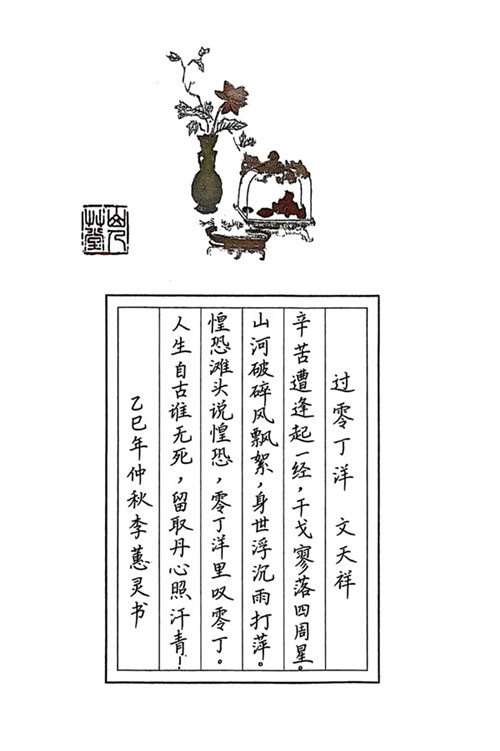 过零丁洋 文天祥
辛苦遭逢起一经，干戈寥落四周星。
山河破碎风飘絮，身世浮沉雨打萍。
惶恐滩头说惶恐，零丁洋里叹零丁。
人生自古谁无死，留取丹心照汗青！
乙巳年仲秋李蕙灵书